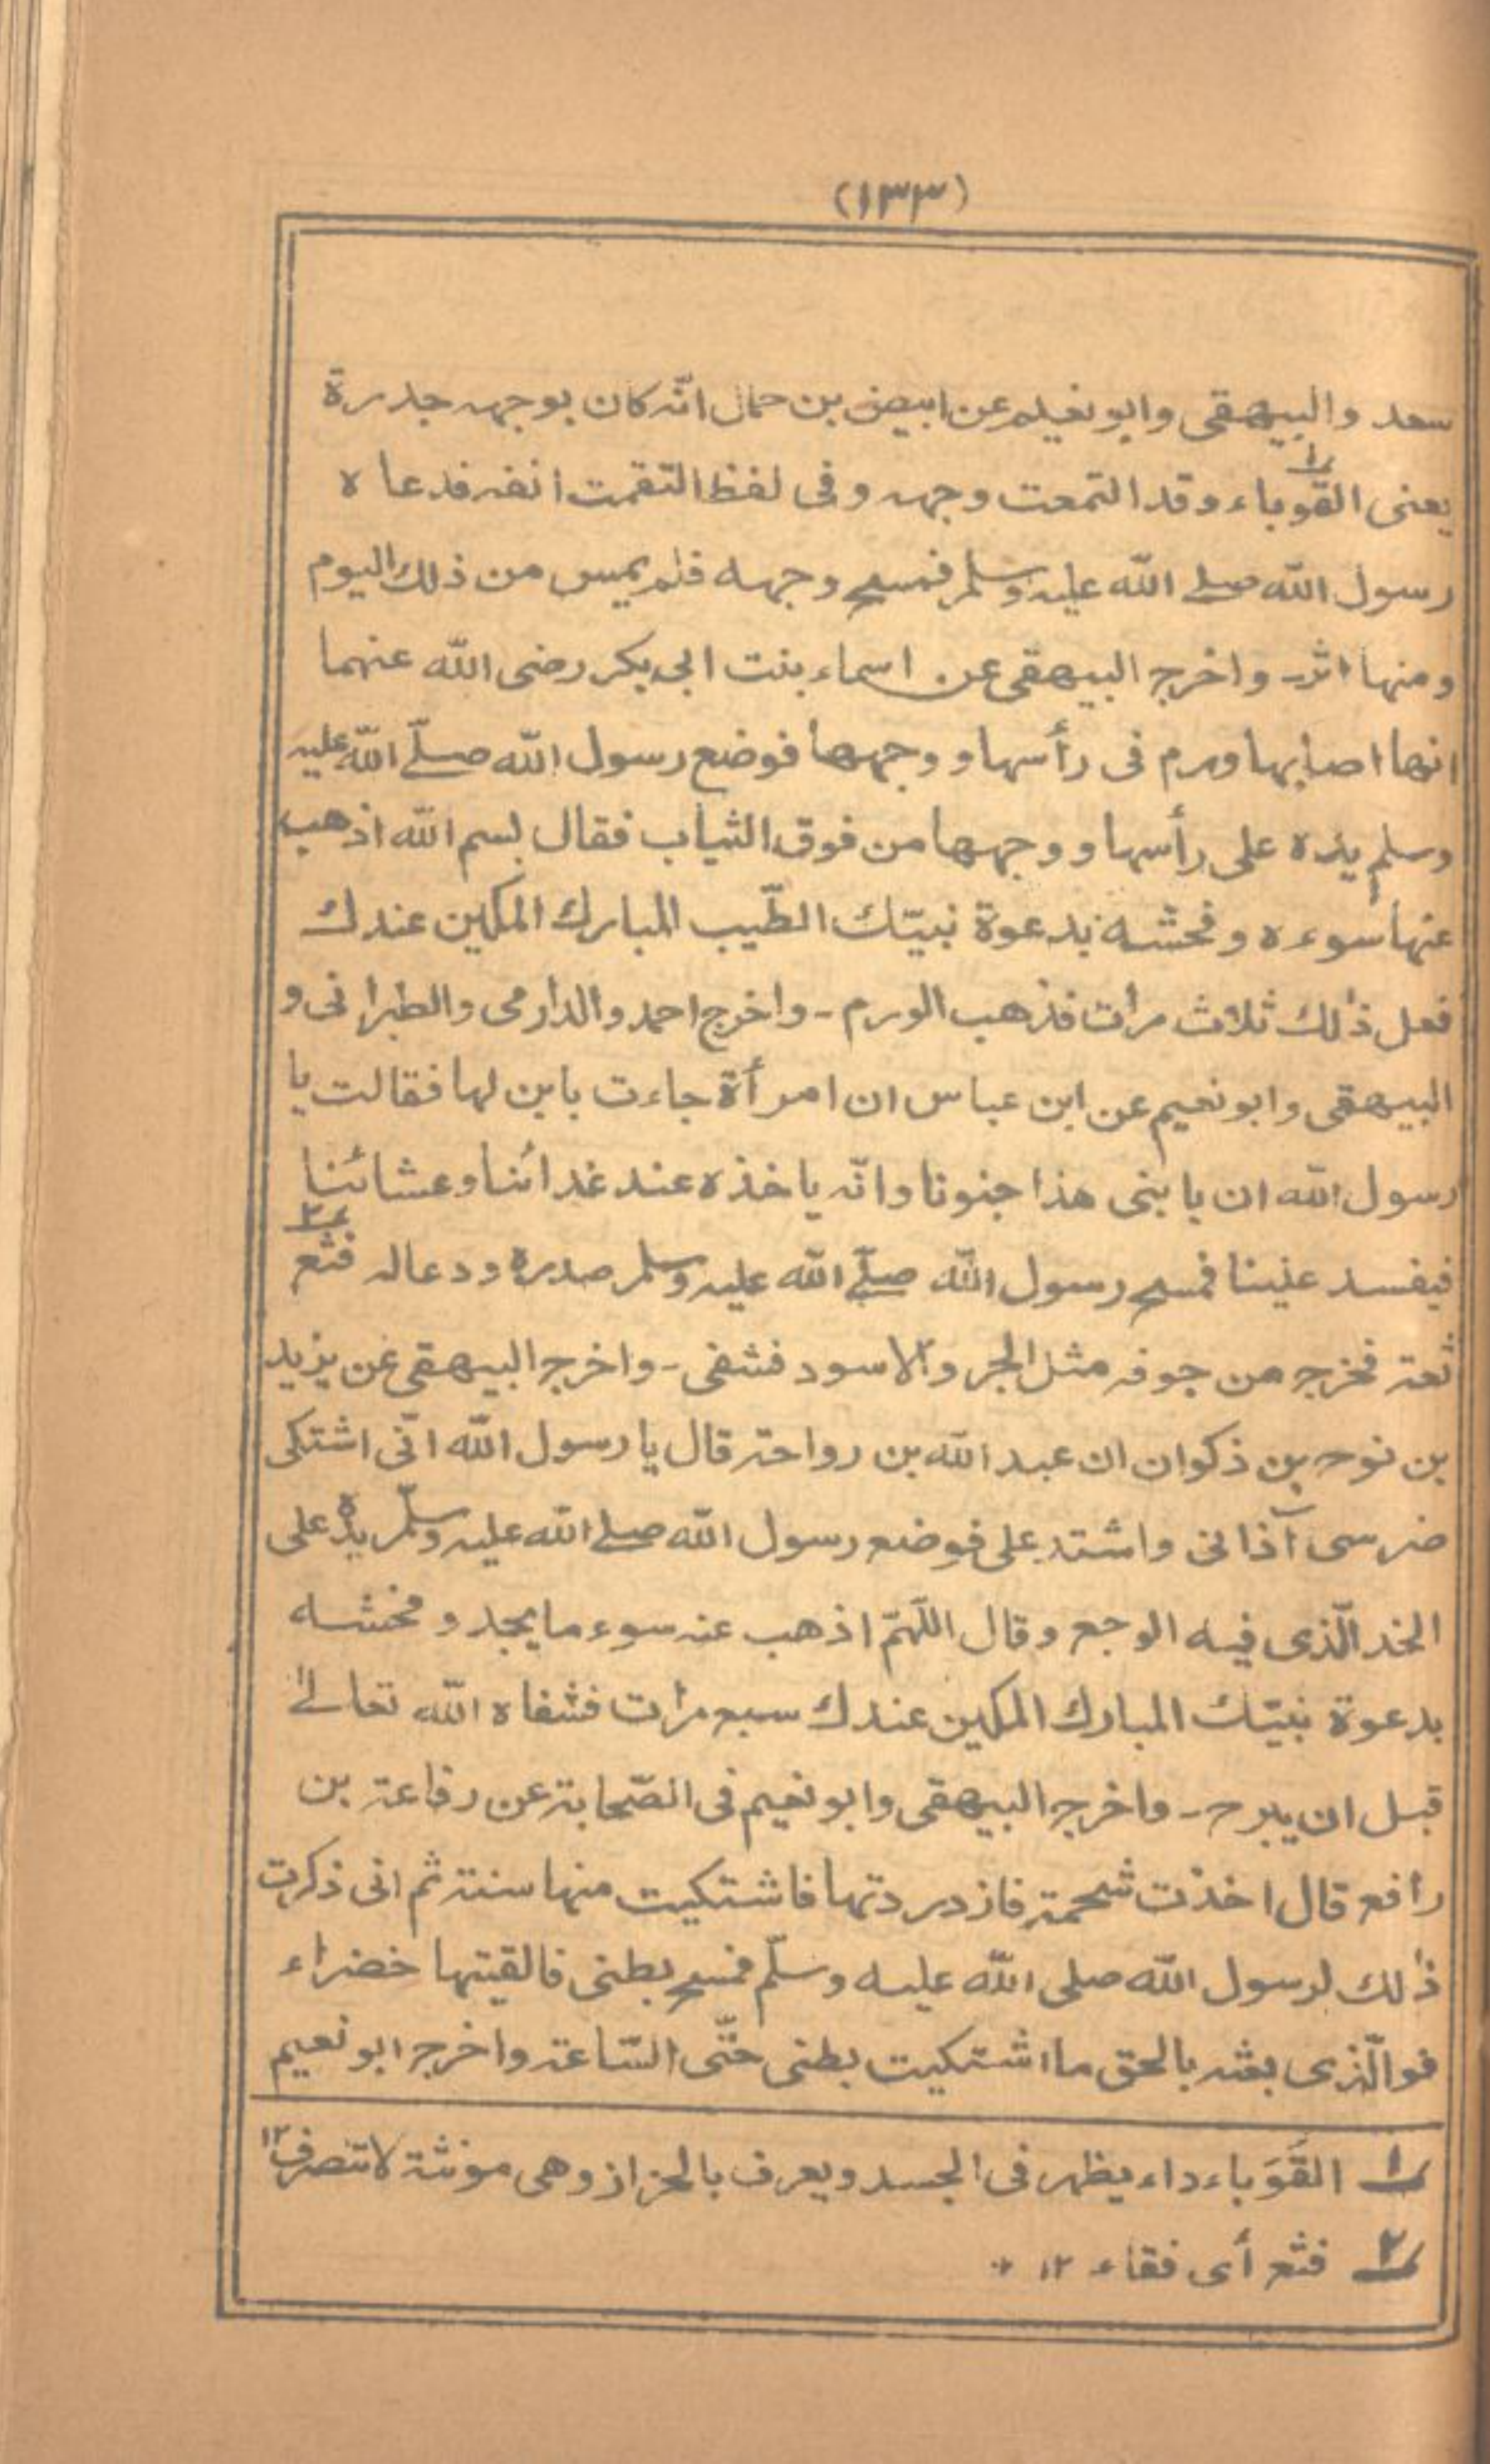 (١٣٣)
سعد والبيهقى وابو نعيلم عن ابيض بن حمال انّه كان بوجهه جدرة
يعنى القوباء١ وقد التمعت وجهه وفى لفظ التقمت انفه فدعا ه
رسول الله صلے الله عليه وسلم فمسح وجهه فلم يمس من ذلك اليوم
ومنها اثر۔ واخرج البيهقى عن اسماء بنت ابى بكر رضى الله عنهما
انها اصابها ورم فى رأسها و وجهها فوضع رسول الله صلّے الله عليه
وسلم يده على رأسها و وجهها من فوق الثياب فقال بسم الله اذهب
عنها سوءه وفحشه بدعوة نبيّك الطّيب المبارك المكين عندك
فعل ذٰلك ثلاث مرات فذهب الورم ۔ واخرج احمد والدارمى والطبرانى و
البيهقى وابو نعيم عن ابن عباس ان امرأة جاءت بابن لها فقالت يا
رسول الله ان يا بنى هذا جنونا وانّه ياخذه عند غدائنا وعشائنا
فيفسد علينا فمسح رسول الله صلّے الله عليه وسلم صدره ودعا له فثع٢
ثعة فخرج من جوفه مثل الجر والاسود فشفى ۔ واخرج البيهقى عن يزيد
بن نوح بن ذكوان ان عبد الله بن رواحة قال يا رسول الله انّى اشتكى
ضرسى آذانى واشتد على فوضع رسول الله صلے الله عليه وسلّم يده على
الخد الّذى فيه الوجع وقال اللّٰهمّ اذهب عنه سوء ما يجد و فحشه
بدعوة نبيّك المبارك المكين عندك سبع مرات فشفاه الله تعالىٰ
قبل ان يبرح ۔ واخرج البيهقى وابو نعيم فى الصّحابة عن رفاعة بن
رافع قال اخذت شحمة فازدردتها فاشتكيت منها سنة ثم انى ذكرت
ذٰلك لرسول الله صلى الله عليه وسلّم فمسح بطنى فالقيتها خضراء
فوالّذى بعثه بالحق ما اشتكيت بطنى حتّى السّاعة واخرج ابو نعيم
١ القَوَباء داء يظهر فى الجسد ويعرف بالحزاز وهى مونثة لا تنصرف ١٢
٢ فثع أى فقاء ١٢ *